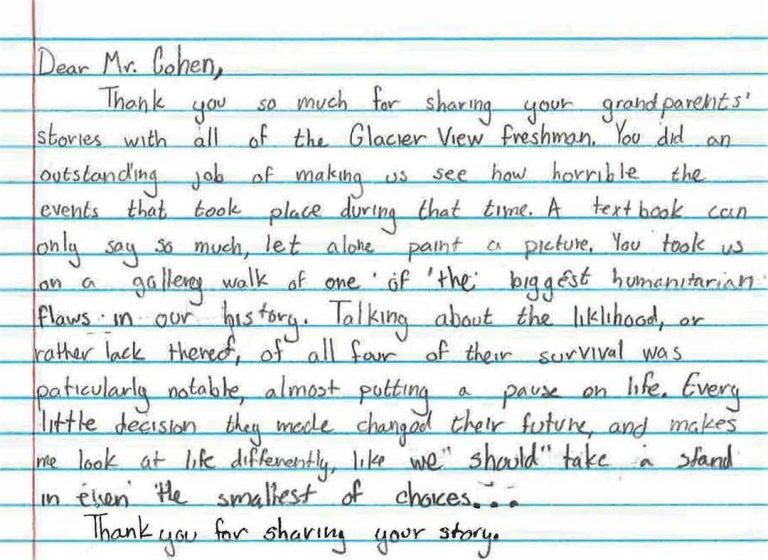 Dear Mr. Cohen,
Thank you so much for sharing your grandparents'
stories with all of the Glacier View freshman. You did an
outstanding job of making us see how horrible the
events that took place during that time. A textbook can
only say so much, let alone paint a picture. You took us
on a gallerey walk of one of the biggest humanitarian
flaws in our history. Talking about the liklihood, or
rather lack thereof, of all four of their survival was
paticularly notable, almost putting a pause on life. Every
little decision they made changed their future, and makes
me look at life differently, like we "should" take a stand
in even the smallest of choices...
Thank you for sharing your story.